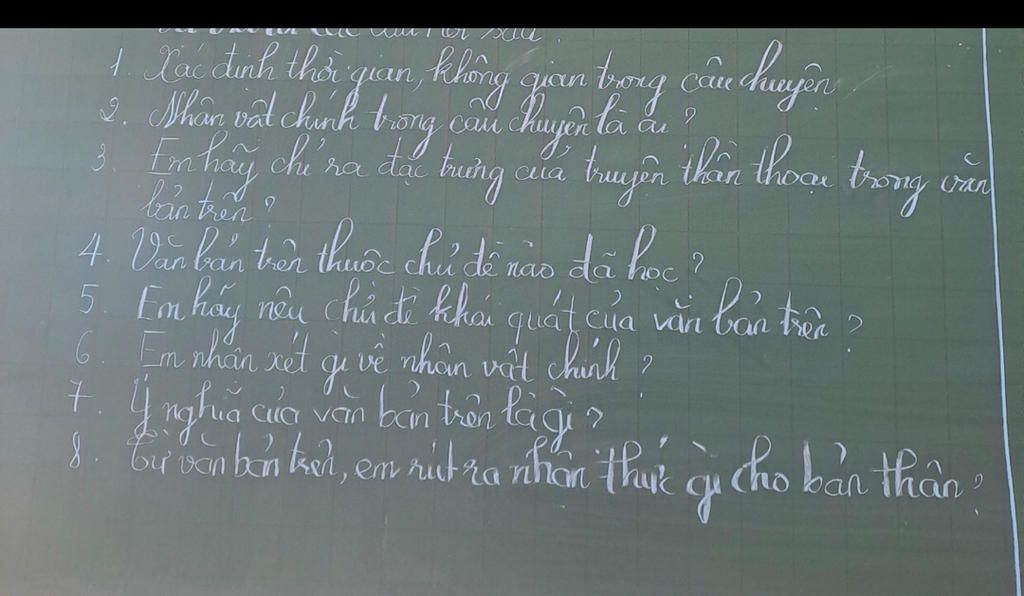 câu hỏi sau:
1. Xác định thời gian, không gian trong câu chuyện
2. Nhân vật chính trong câu chuyện là ai?
3. Em hãy chỉ ra đặc trưng của truyện thần thoại trong văn
bản trên?
4. Văn bản trên thuộc chủ đề nào đã học?
5. Em hãy nêu chủ đề khái quát của văn bản trên?
6. Em nhận xét gì về nhân vật chính?
7. Ý nghĩa của văn bản trên là gì?
8. Từ văn bản trên, em rút ra nhận thức gì cho bản thân?